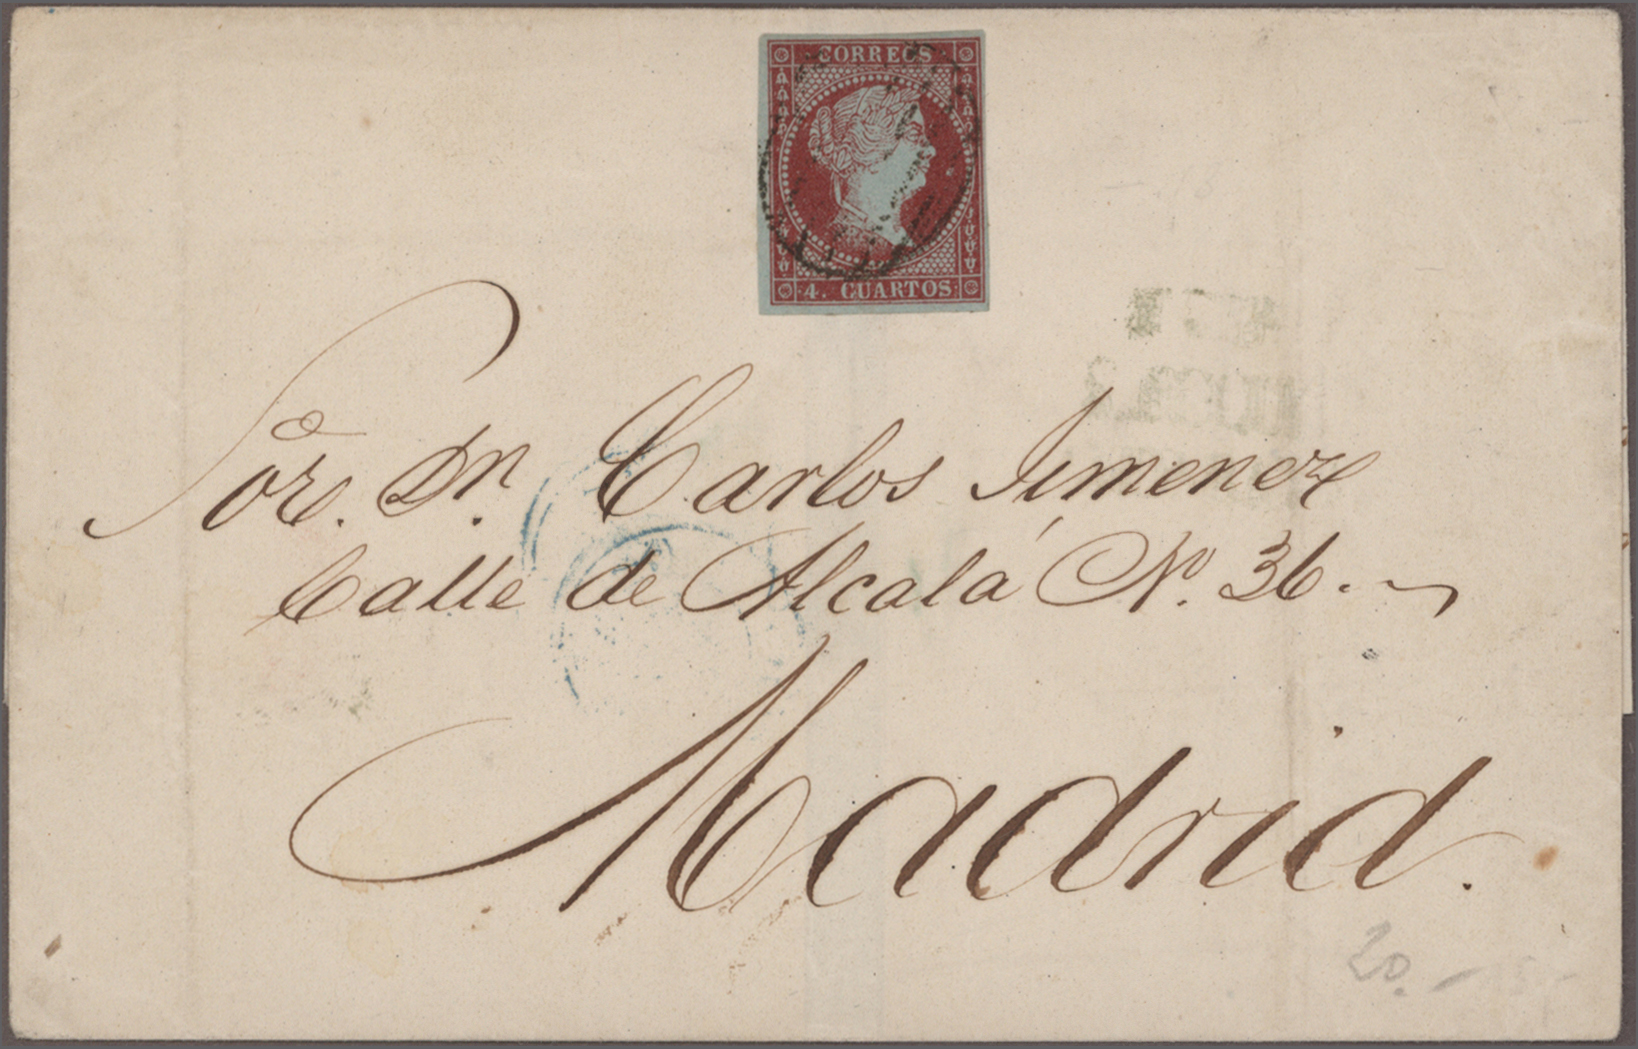 CORREOS
4. CUARTOS
Sor. Dn. Carlos Jimenez
Calle de Alcalá No. 36.
Madrid.
20.-